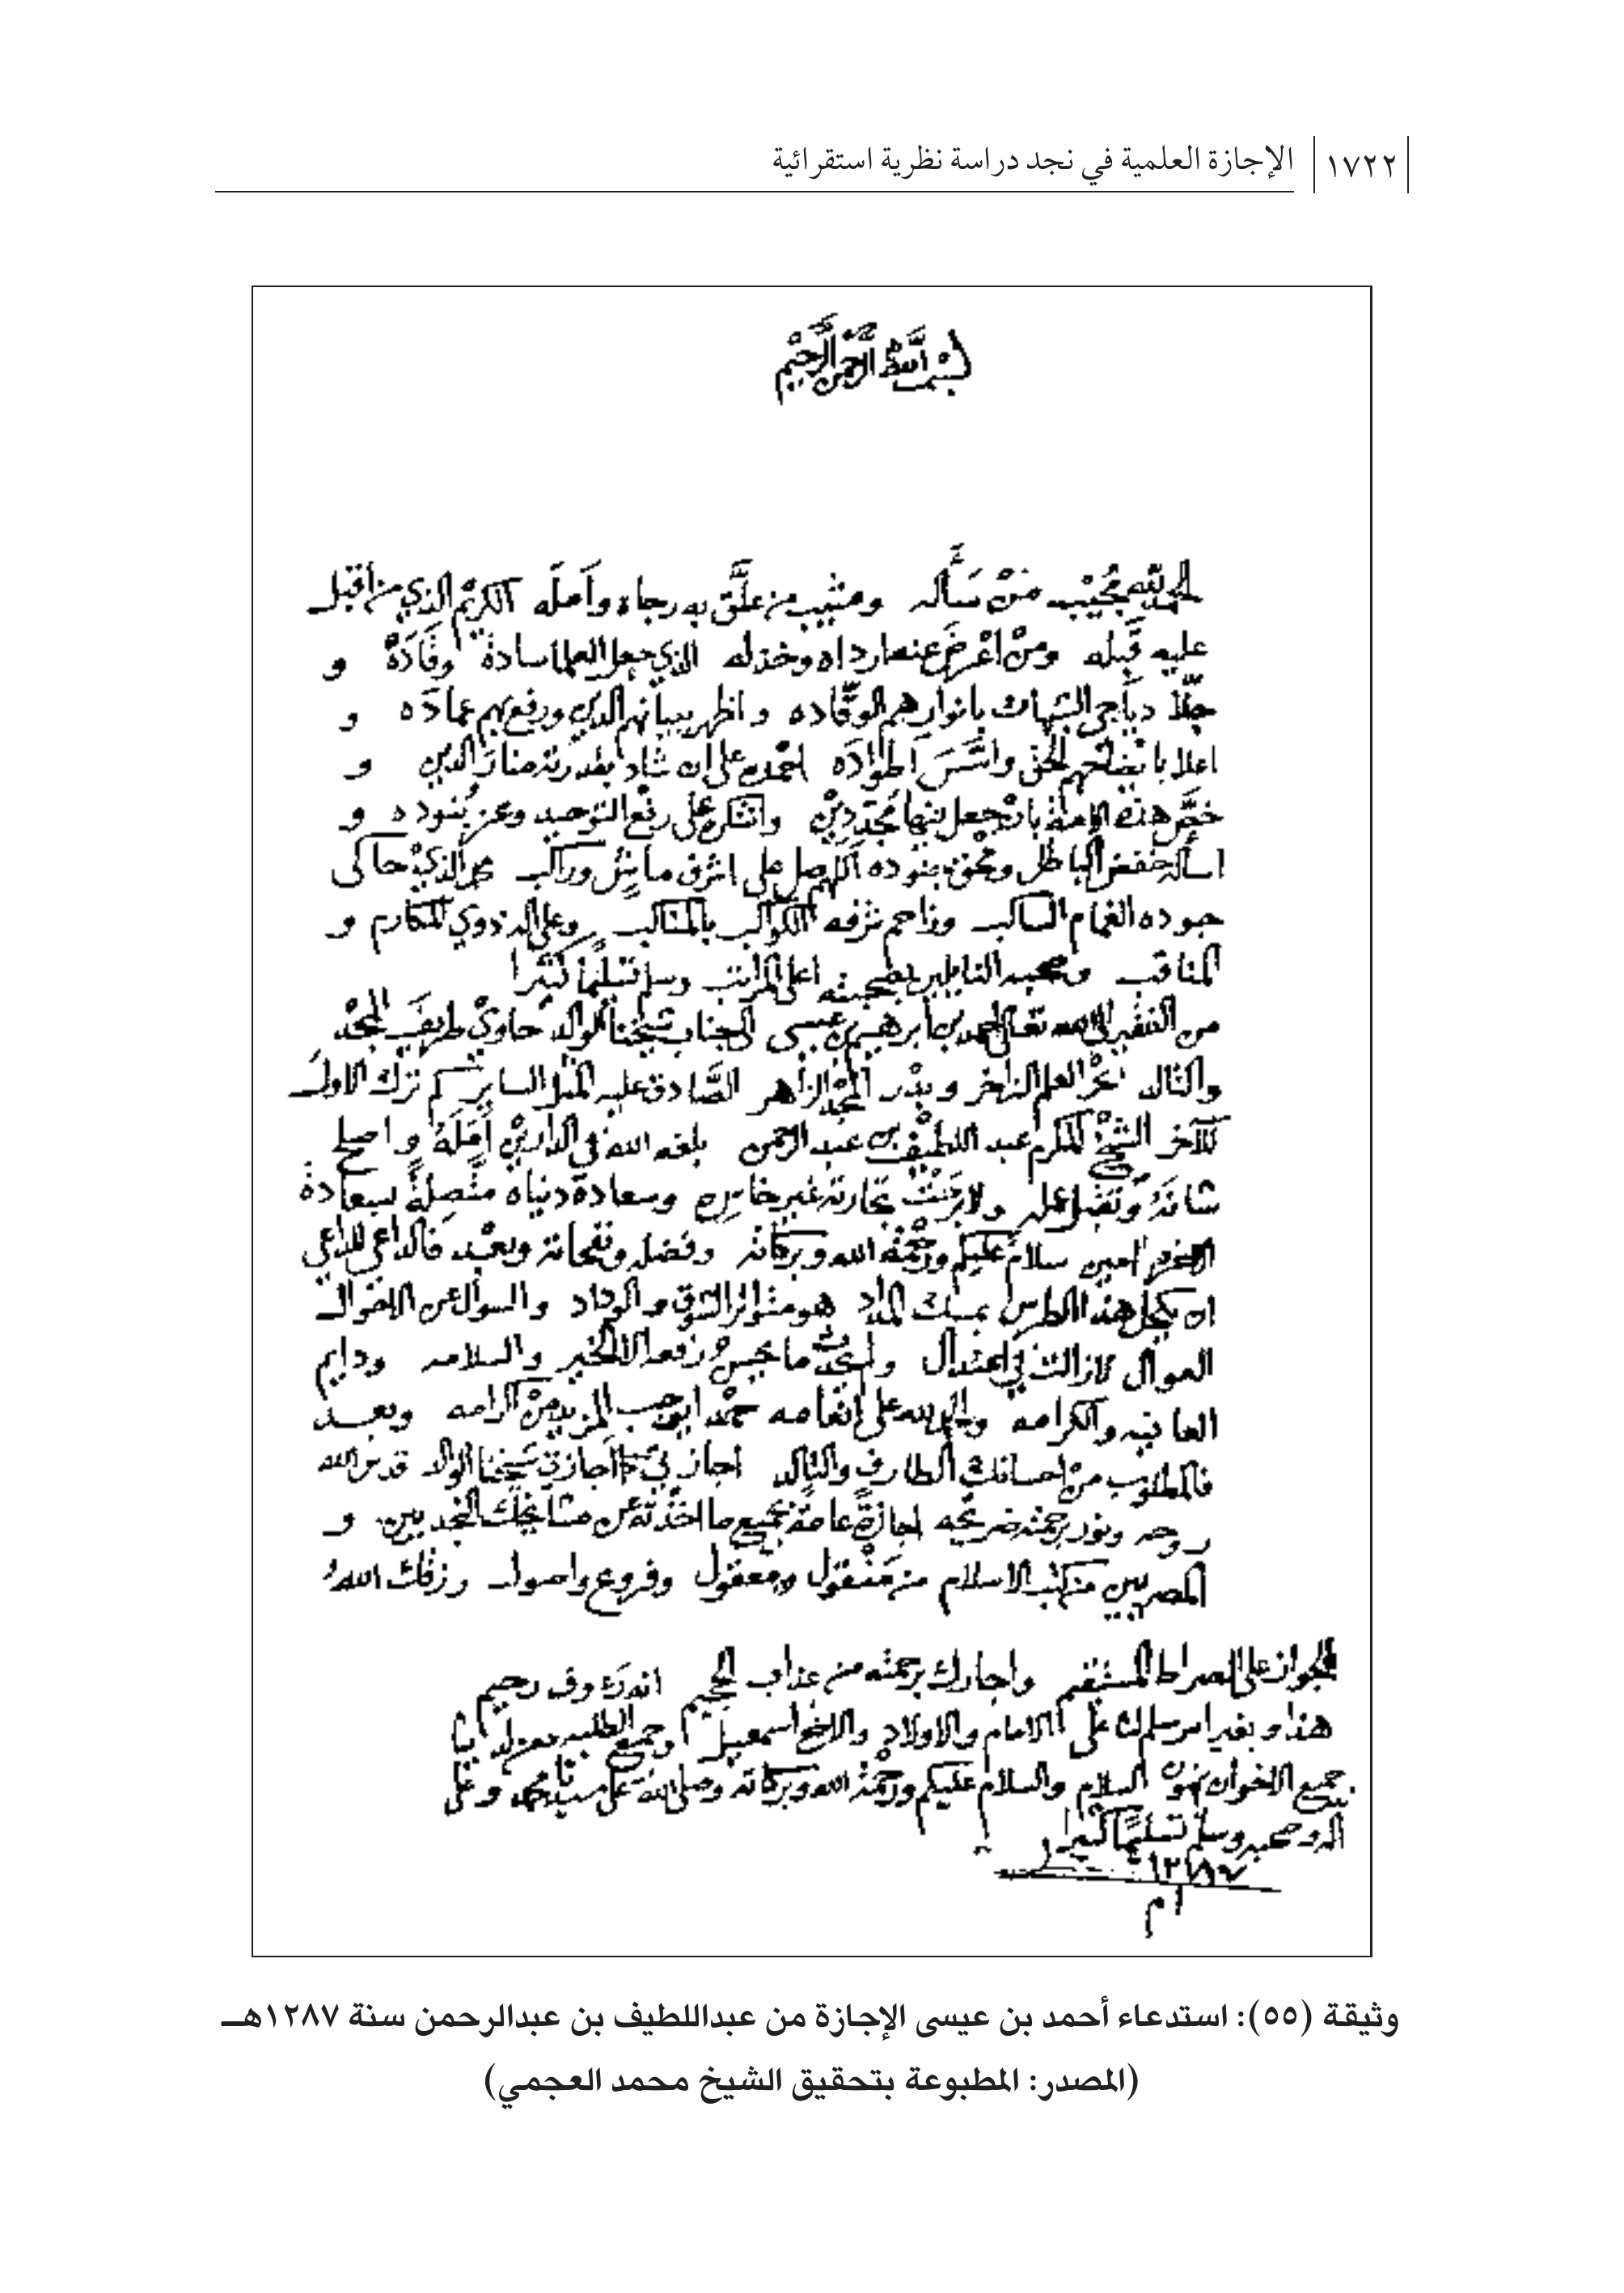 ١٧٢٢ الإجازة العلمية في نجد دراسة نظرية استقرائية
بسم الله الرحمن الرحيم
الحمد لله مجيب من سأله ومثيب من علق به رجاه وأمله الكريم الذي من أقبل
عليه قبله ومن أعرض عنه رداه وخذله الذي جعل العلما سادة وقادة و
جلا دياجي الشبهات بانوارهم الوقاده واظهر ببيانهم الدين ورفع بهم عماده و
اعلا الحق وأسس اطواده احمده على ان شاد بقدرته منار الدين و
خص هذه الامة بان جعل منها مجددين واشكره على رفع التوحيد وعز بنوده و
اسأله خفض الباطل ومحق جنوده اللهم صل على اشرف ماش وراكب محمد الذي حاكى
جوده الغمام الساكب وزاحم شرفه الكواكب بالمناكب وعلى اله ذوي المكارم و
المناقب وصحبه النايلين بصحبته اعلى المراتب وسلم تسليما كثيرا
من الفقير الى الله تعالى احمد بن ابرهيم بن عيسى الى جناب شيخنا الوالد حاوي طريف المجد
والتالد بحر العلم الزاخر وبدر المجد الزاهر الصادق عليه المثل الساير كم ترك الاول
للآخر الشيخ المكرم عبد اللطيف بن عبد الرحمن بلغه الله في الدارين أمله واصلح
شانه وتقبل عمله ولا برحت تجارته غير خاسره وسعادة دنياه متصلة بسعادة
الاخره امين سلام عليكم ورحمة الله وبركاته وفضله ونفحاته وبعد فالداعي للداعي
ان يكحل هذا الطرس بمسك المداد هو متواتر الشوق والوداد والسوال عن الاحوال
العوال لازالت في اعتدال ولم يحدث ما يحسن رفعه الا الخير والسلامه ودايم
العافيه والكرامه والحمد لله على إنعامه حمدا يوجب المزيد من اكرامه وبعد
فالمطلوب من احسانك الطارف والتالد اجازتي كما أجازني شيخنا الوالد قدس الله
روحه ونور برحمته ضريحه اجازة عامة بجميع ما اخذته عن مشائخك النجديين و
المصريين من كتب الاسلام من منقول ومعقول وفروع واصول رزقك الله
الجواز على الصراط المستقيم واجارك برحمته من عذاب الجحيم انه رؤوف رحيم
هذا وبغير امر سلم لنا على الامام والاولاد والاخ اسمعيل وجميع الطلبه
جميع الاخوان ينهون السلام والسلام عليكم ورحمة الله وبركاته وصلى الله على سيدنا محمد وعلى
اله وصحبه وسلم تسليما كثيرا
١٢٨٧
وثيقة (٥٥): استدعاء أحمد بن عيسى الإجازة من عبداللطيف بن عبدالرحمن سنة ١٢٨٧هـ
(المصدر: المطبوعة بتحقيق الشيخ محمد العجمي)